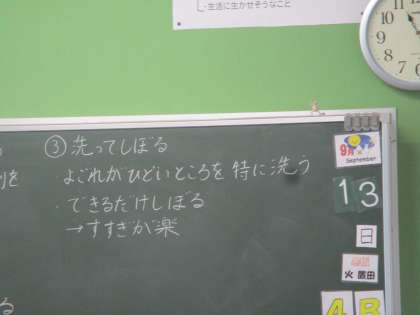 ・生活に生かせそうなこと
③洗ってしぼる
よごれがひどいところを特に洗う
・できるだけしぼる
→すすぎが楽
9月
September
13
日
火曜日
4 B
る